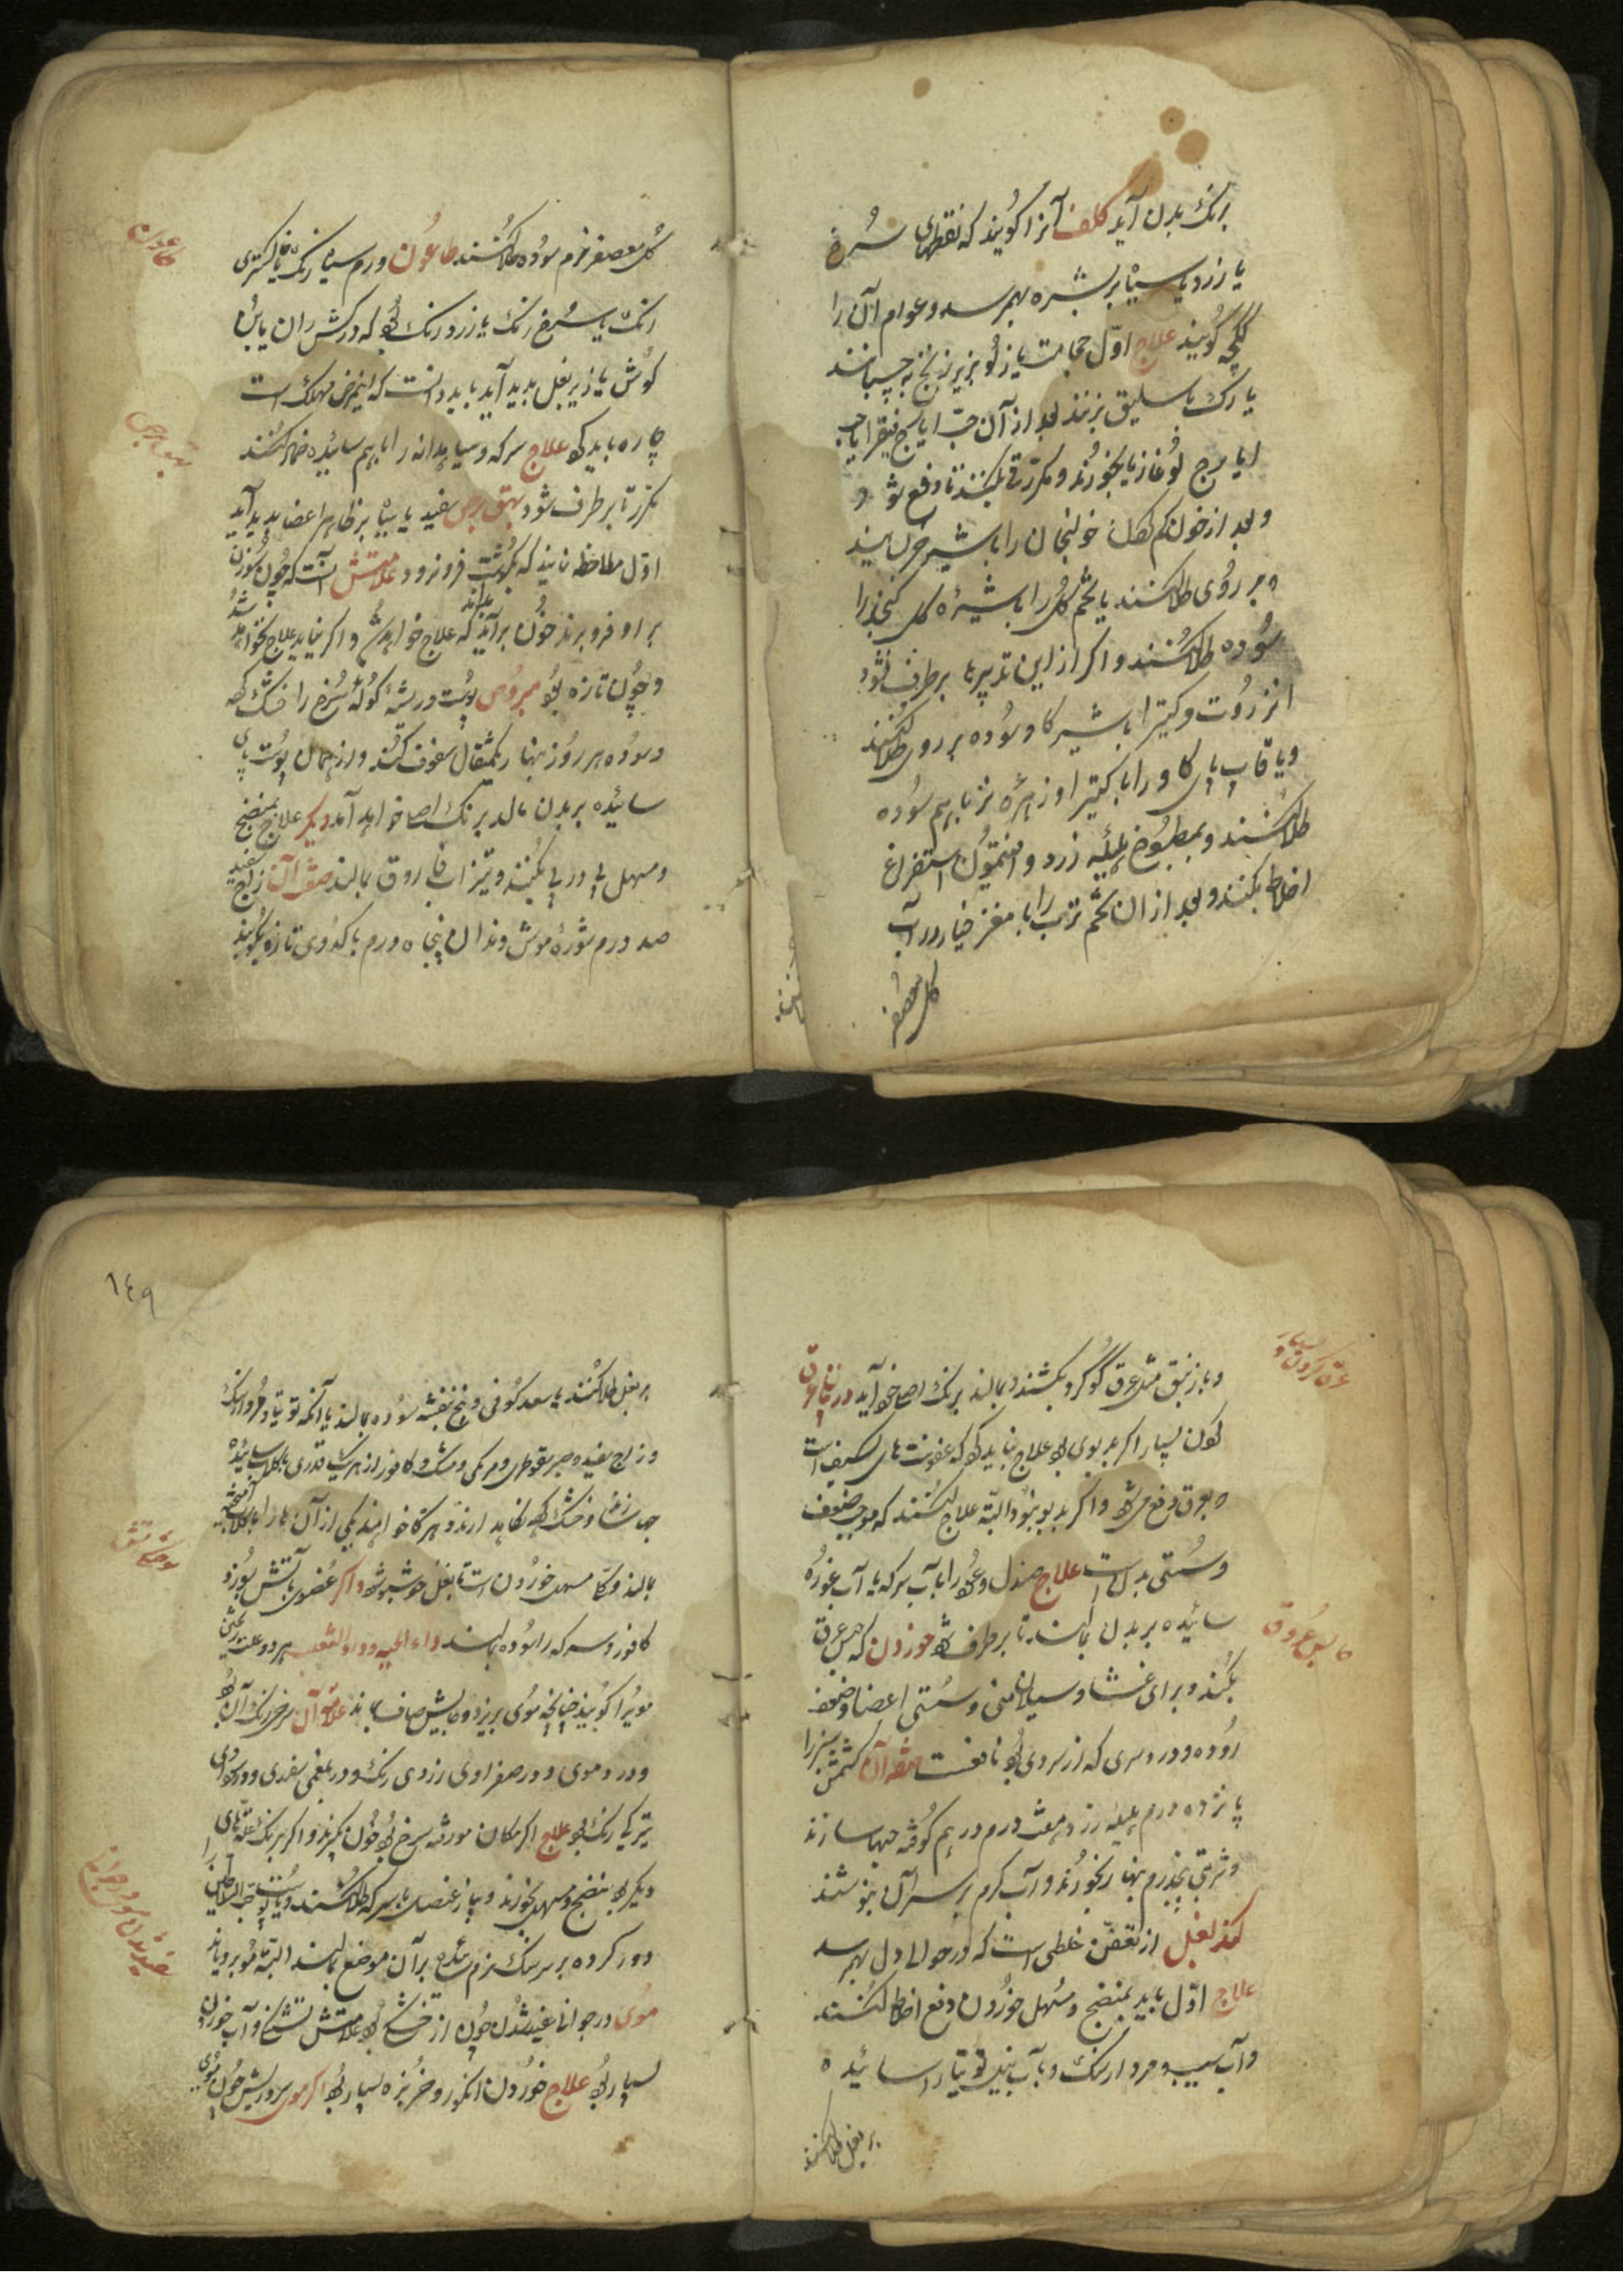 برنک بدن آید کلف آنرا کویند که نقطهای سُرخ
یا زرد یا سیاه بر بشره بهم رسد و عوام آن را
ککچه کویند علاج اوّل حجامت یا زلو بزیر زنخ بچسپانند
یا رک باسلیق بزنند بعد از آن حبّ ایارج فیقرا یا حب
ایارج لوغازیا بخورند و مکرّر قی بکنند تا دفع شود
و بعد از خون کم کردن خولنجان را با شیر خر
بر روی طلا کنند یا تخم کل را با شیرهٔ
سُوده طلا کنند و اکر از این تدبیرها برطرف نشود
انزروت و کتیرا با شیر کاو سوده بر روی طلا کنند
و یا قاب پای کاو را با کتیرا و زهرهٔ بز با هم سُوده
طلا کنند و بمطبوخ هلیله زرد و افتیمون استفراغ
اخلاط بکنند و بعد از ان تخم ترب را با مغز خیار در آب
کل معصفر
طاعون
کل معصفر نرم سوده طلا کنند طاعُون ورم سیاه رنک یا خاکستری
رنک یا سُرخ رنک یا زرد رنک بود که در کش ران یا بن
کوش یا زیر بغل پدید آید باید دانست که اینمرض مهلک است
چاره باید کرد علاج سرکه و سیاهدانه را با هم سائیده ضماد کنند
بهق برص
مکرر تا برطرف شود بهق برص سفید یا سیاه بر ظاهر اعضا پدید آید
اوّل ملاحظه نمایند که بکوشت فرو نرود علامتش آنست که چون سُوزن
بر او فرو برند خُون برآید بدانند که علاج خواهد شد و اکر نیاید علاج نخواهد شد
و چون تازه بود پوست و ریشهٔ سُرخ را خشک کرده
و سوده هر روز نهار یکمثقال سفوف کنند و از همان پوست
سائیده بر بدن مالد برنک اصلی خواهد آمد دیکر علاج بمنضج
و مسهل پی در پی بکنند و تیزاب فاروق بمالند صفة آن زاج سفید
صد درم شورهٔ موش دندان پنجاه درم با کدوی تازه بکیرند
عرق کردن بسیار
و با زیبق مثل عرق کوکرد بکشند و بمالند برنک اصلی خواهد آید در بیان عرق
کردن بسیار اکر بدبوی بود علاج نباید کرد که عفونت های کسیف است
و بعرق دفع میشود و اکر بدبو نبود البتّه علاج کنند که موجب ضعف
و سُستی بدنست علاج صندل و عود را با آب سرکه یا آب غوره
حابس عروق
سائیده بر بدن بمالند تا برطرف شود خوردن که حبس عرق
بکند و برای غشا و سیلان منی و سُستی اعضا و ضعف
روده و درد سری که از سردی بود نافعست صفة آن کشمش سبز را
پانزده درم هلیله زرد هفت درم درهم کوفته حبها سازند
و شربتی پنجدرم نهار بخورند و آب کرم بر سر آن بنوشند
کند بغل از تعفّن خلطی است که در حوالی دل بهم رسد
علاج اوّل باید بمنضج و مُسهل خوردن دفع اخلاط کنند
و آب سیب و مردارسنک و با آب توتیا را سائیده
بر بغل طلا کنند
۱٤۹
بر بغل طلا کنند یا سعد کوفی و بیخ بنفشه سوده بمالند یا آنکه توتیا و مُردارسنک
و زاج سفید و صبر سقوطری و مر مکی و مشک و کافور از هر یک قدری با کلاب سائیده
حبها سازند و خشک کرده نکاهدارند و هرکاه خواهند یکی از آن ها را با کلاب آمیخته
سوختکی آتش
بمالند و مسهل خوردن است تا بغل خوشبو شود و اکر عُضوی بآتش بسُوزد
کافور و سرکه را سُوده بمالند داء الحیه و داء الثعلب هر دو علت ریختن
مویرا کویند چنانچه موی بریزد و جایش صاف بماند علامة آن سرخی رنک آن بود
و در دموی و در صفراوی زردی رنک و در بلغمی سفیدی و در سوداوی
تیرکی رنک بود علاج اکر مکان سرخ بود خُون بکیرند و اکر برنک علتهای
دیکر بود بمنضج و مسهل بخورند و پیاز عنصل با سرکه طلا کنند و یا پوست حبّ السلاطین
دور کرده بر سر سنک نرم سائیده بر آن موضع بمالند البتّه مُو برویاند
سفید شدن موی در جوانها
موی در جوانها سفید شدن چون از خشکی بود علامتش تشنکی و آب خوردن
بسیار بود علاج خوردن انکور و خربزه بسیار بود اکر موی سر و ریش چون موی